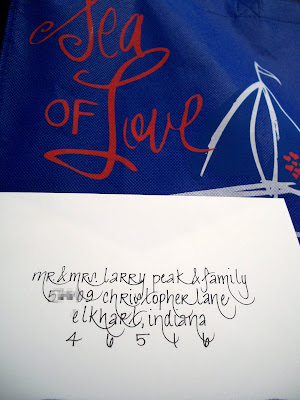 Sea
OF
Love
mr & mrs. larry peak & family
christopher lane
elkhart, indiana
46516